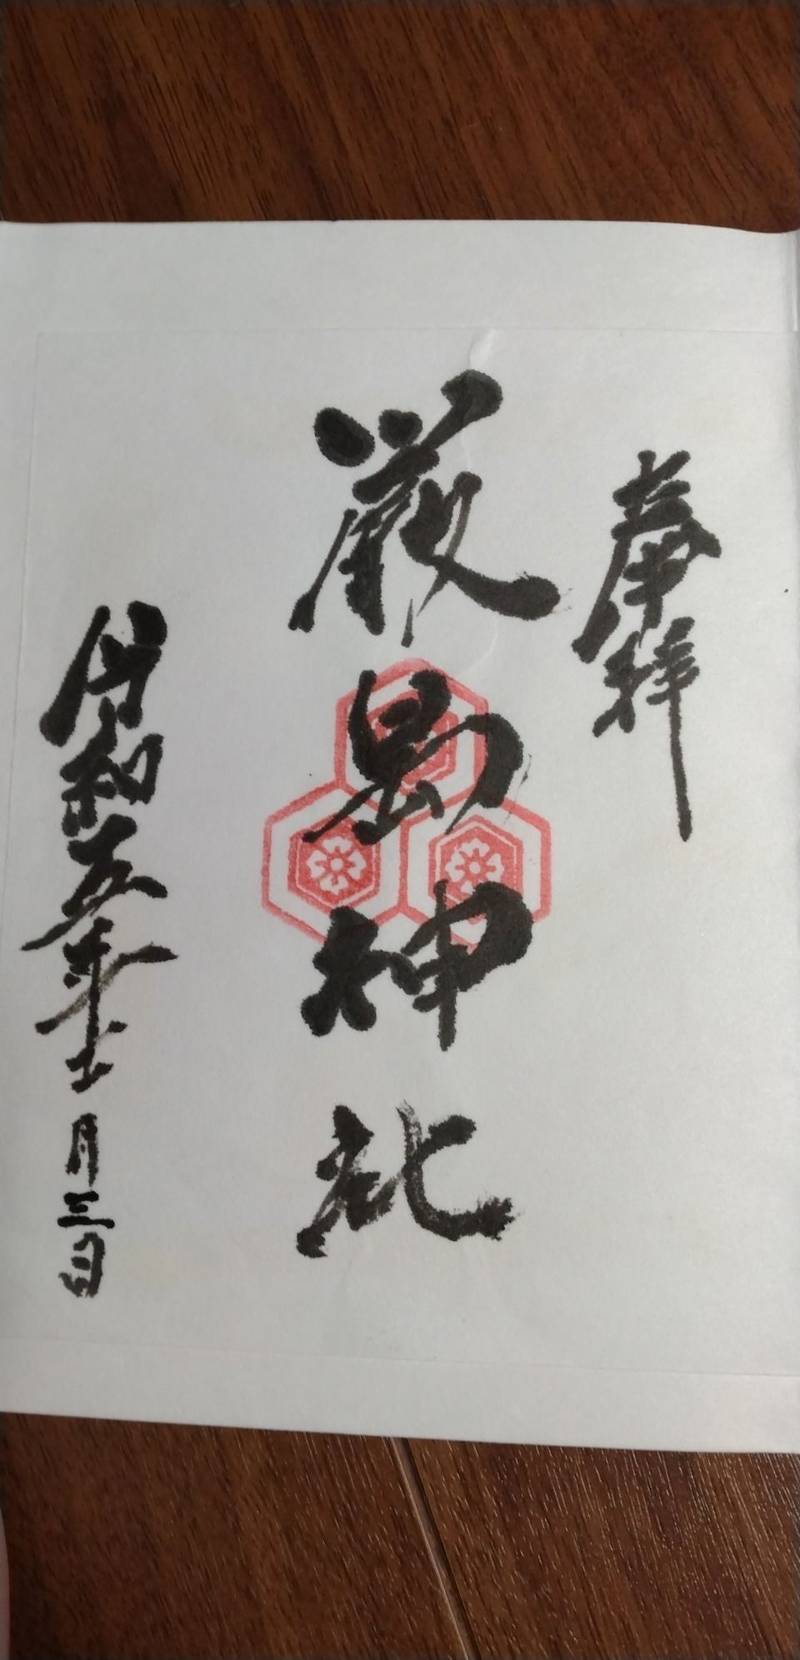 奉拝
厳島神社
令和五年十一月三日